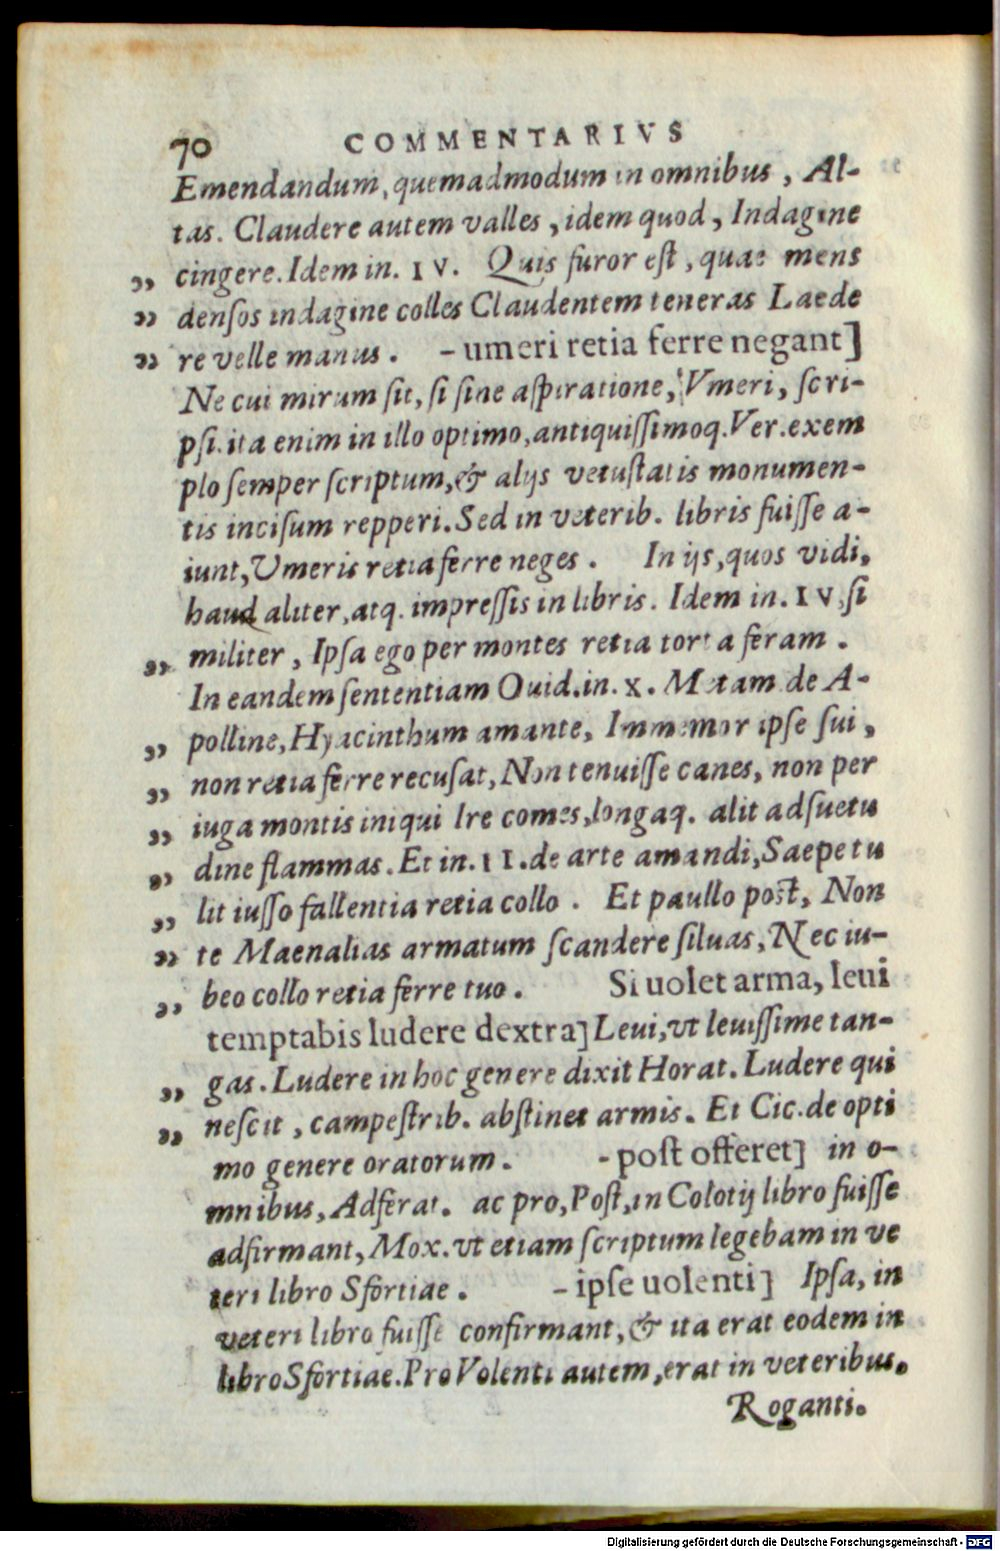 70 COMMENTARIVS
Emendandum, quemadmodum in omnibus, Al-
tas. Claudere autem valles, idem quod, Indagine
„ cingere. Idem in. IV. Quis furor est, quae mens
„ densos indagine colles Claudentem teneras Laede
„ re velle manus. - umeri retia ferre negant]
Ne cui mirum sit, si sine aspiratione, Vmeri, scri-
psi. ita enim in illo optimo, antiquissimoq. Ver. exem
plo semper scriptum, & alijs vetustatis monumen-
tis incisum repperi. Sed in veterib. libris fuisse a-
iunt, Vmeris retia ferre neges. In ijs, quos vidi,
haud aliter, atq. impressis in libris. Idem in. IV. si
„ militer, Ipsa ego per montes retia torta feram.
In eandem sententiam Ouid. in. X. Metam. de A-
„ polline, Hyacinthum amante, Immemor ipse sui,
„ non retia ferre recusat, Non tenuisse canes, non per
„ iuga montis iniqui Ire comes, longaq. alit adsuetu
„ dine flammas. Et in. II. de arte amandi, Saepe tu
„ lit iusso fallentia retia collo. Et paullo post, Non
„ te Maenalias armatum scandere siluas, Nec iu-
„ beo collo retia ferre tuo. Si uolet arma, leui
temptabis ludere dextra] Leui, vt leuissime tan-
„ gas. Ludere in hoc genere dixit Horat. Ludere qui
„ nescit, campestrib. abstinet armis. Et Cic. de opti
mo genere oratorum. - post offeret] in o-
mnibus, Adferat. ac pro, Post, in Colotij libro fuisse
adfirmant, Mox. vt etiam scriptum legebam in ve
teri libro Sfortiae. - ipse uolenti] Ipsa, in
veteri libro fuisse confirmant, & ita erat eodem in
libro Sfortiae. Pro Volenti autem, erat in veteribus.
Roganti.
Digitalisierung gefördert durch die Deutsche Forschungsgemeinschaft - DFG